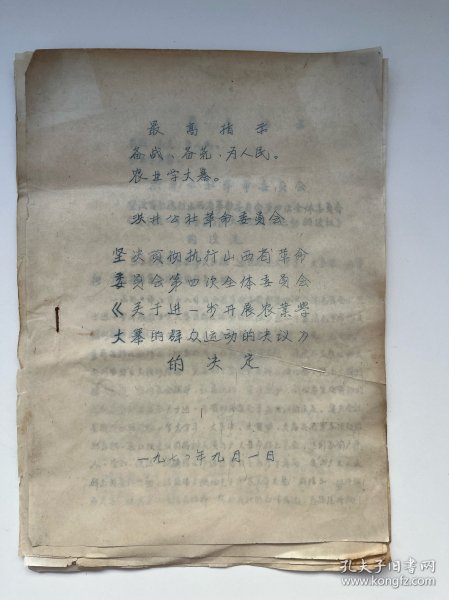 最高指示
备战、备荒、为人民。
农业学大寨。
公社革命委员会
坚决贯彻执行山西省革命
委员会第四次全体委员会
《关于进一步开展农业学
大寨的群众运动的决议》
的决定
一九七〇年九月一日
孔夫子旧书网
www.kongfz.com